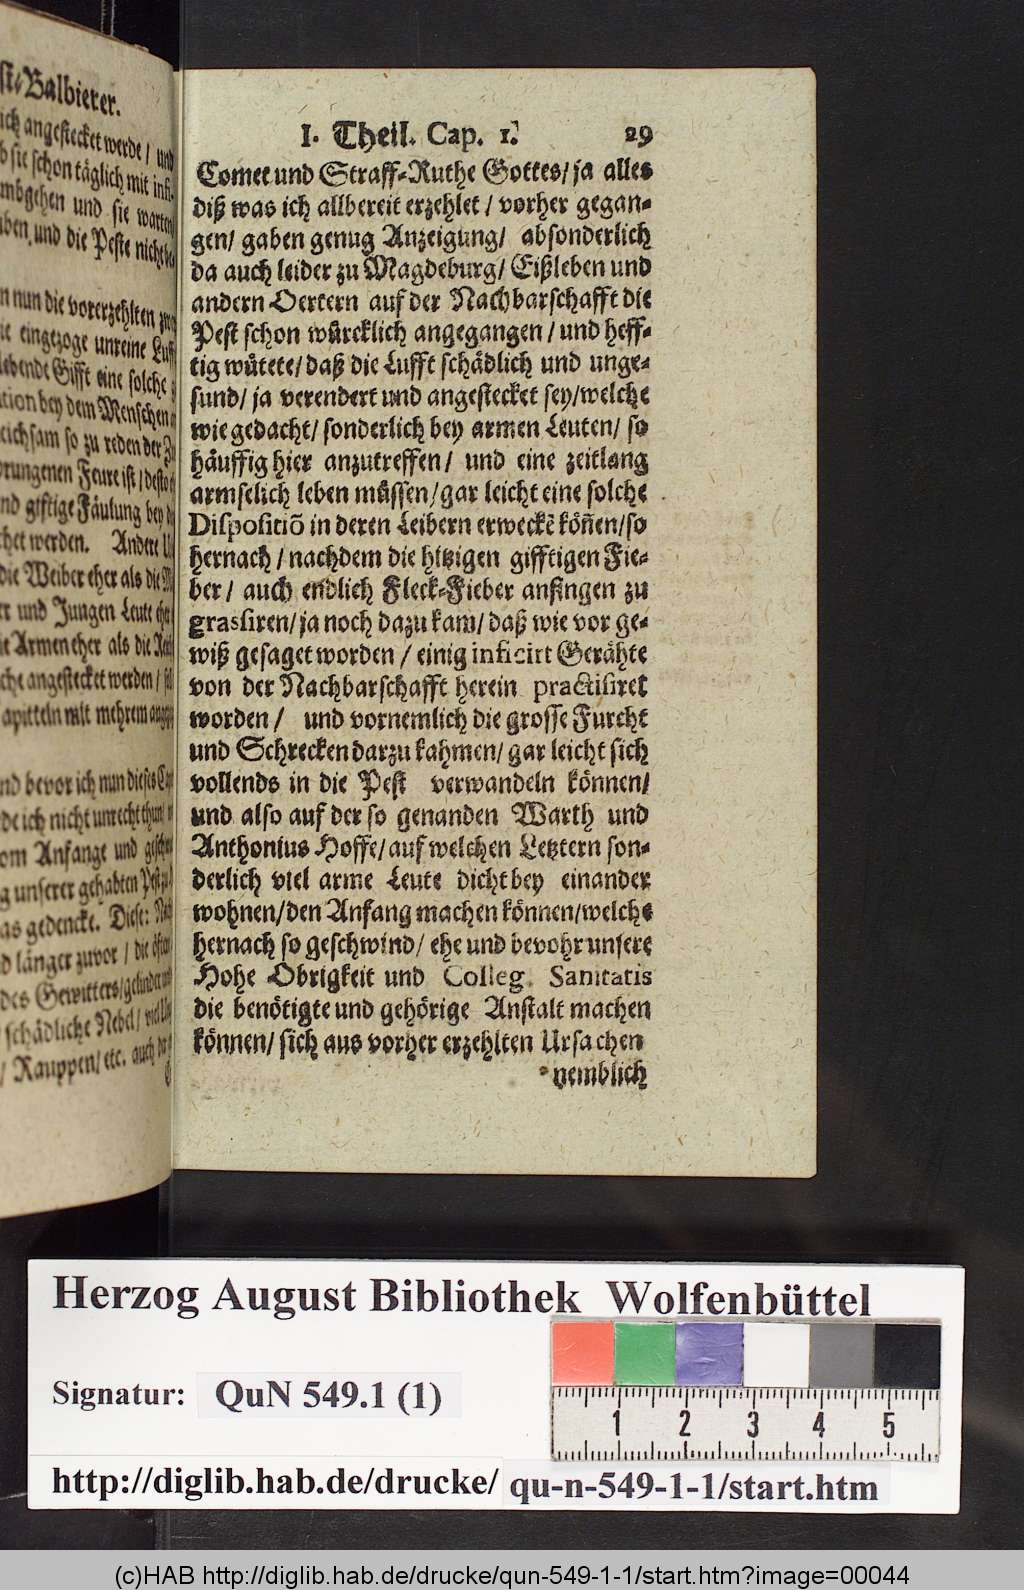 st-Balbierer.
ich angestecket werde / und
sie schon täglich mit infi-
umbgehen und sie warten
aben, und die Peste nicht
nun die vorerzehlten
eingezoge unreine Luff
Gifft eine solche
bey dem Menschen
gleichsam so zu reden der
Feure ist / desto
und gifftige Fäulung bey
werden. Andere
die Weiber eher als die
und Jungen Leute eher
Armen eher als die
angestecket werden /
Capitteln mit mehrem
und bevor ich nun dieses Cap
de ich nicht unrecht thun
vom Anfange und
unserer gehabten Pest
was gedencke. Diese:
länger zuvor / die
des Gewitters / gelinder
schädliche Nebel / viel
/ Rauppen / etc. auch
I. Theil. Cap. 1. 29
Comet und Straff-Ruthe Gottes / ja alles
diß was ich allbereit erzehlet / vorher gegan-
gen / gaben genug Anzeigung / absonderlich
da auch leider zu Magdeburg / Eißleben und
andern Oertern auf der Nachbarschafft die
Pest schon würcklich angegangen / und heff-
tig wütete / daß die Lufft schädlich und unge-
sund / ja verendert und angestecket sey / welche
wie gedacht / sonderlich bey armen Leuten / so
häuffig hier anzutreffen / und eine zeitlang
armselich leben müssen / gar leicht eine solche
Dispositiõ in deren Leibern erweckẽ köñen / so
hernach / nachdem die hitzigen gifftigen Fie-
ber / auch endlich Fleck-Fieber anfingen zu
grassiren / ja noch dazu kam / daß wie vor ge-
wiß gesaget worden / einig inficirt Gerähte
von der Nachbarschafft herein practisiret
worden / und vornemlich die grosse Furcht
und Schrecken darzu kahmen / gar leicht sich
vollends in die Pest verwandeln können /
und also auf der so genanden Warth und
Anthonius Hoffe / auf welchen Letztern son-
derlich viel arme Leute dicht bey einander
wohnen / den Anfang machen können / welche
hernach so geschwind / ehe und bevohr unsere
Hohe Obrigkeit und Colleg. Sanitatis
die benötigte und gehörige Anstalt machen
können / sich aus vorher erzehlten Ursachen
nemblich
Herzog August Bibliothek Wolfenbüttel
Signatur: QuN 549.1 (1)
1 2 3 4 5
http://diglib.hab.de/drucke/ qu-n-549-1-1/start.htm
(c)HAB http://diglib.hab.de/drucke/qun-549-1-1/start.htm?image=00044